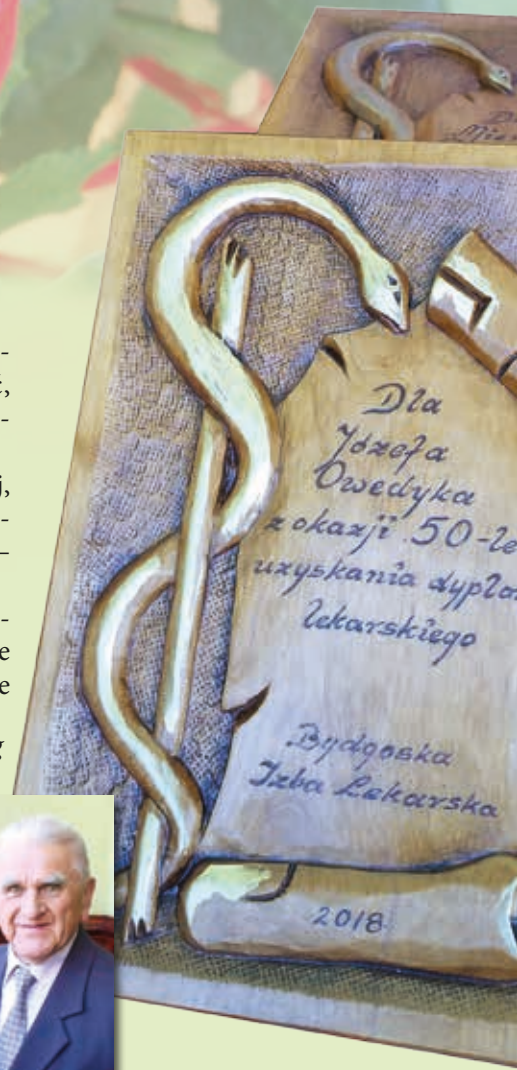 Dla
Józefa
Owedyka
z okazji 50-le
uzyskania dyplo
lekarskiego
Bydgoska
Izba Lekarska
2018